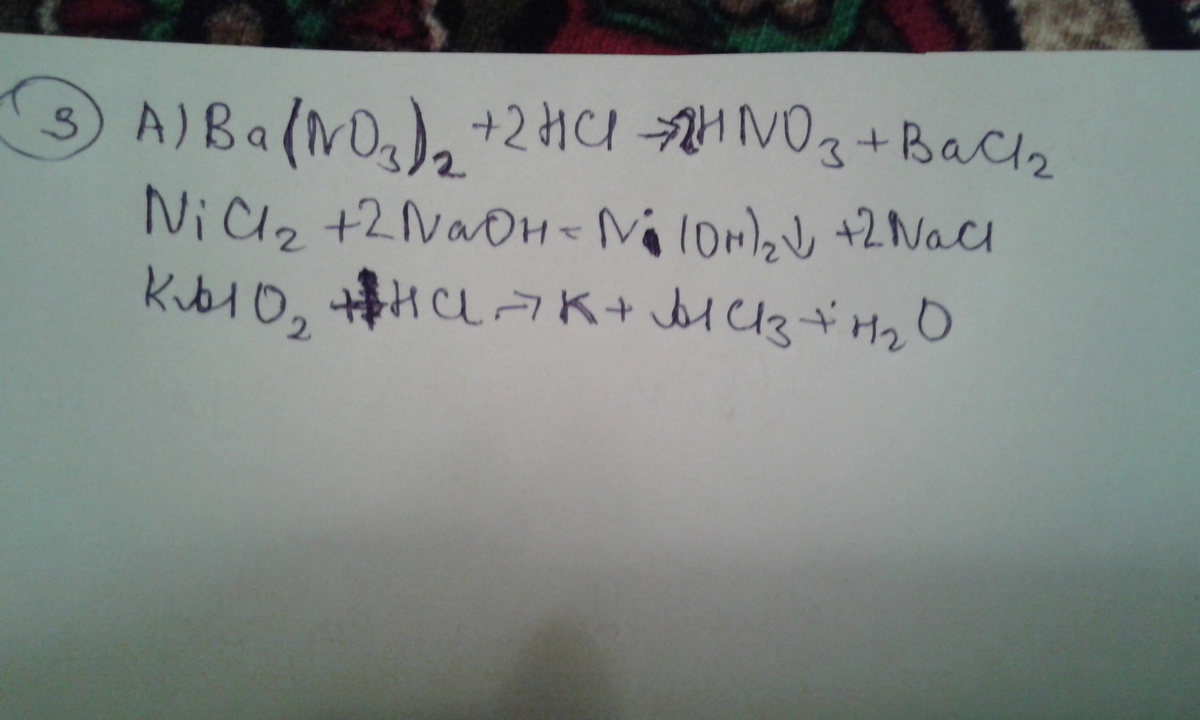 3 A) Ba(NO₃)₂ + 2HCl → 2HNO₃ + BaCl₂
NiCl₂ + 2NaOH = Ni(OH)₂↓ + 2NaCl
KAlO₂ + HCl → K + AlCl₃ + H₂O